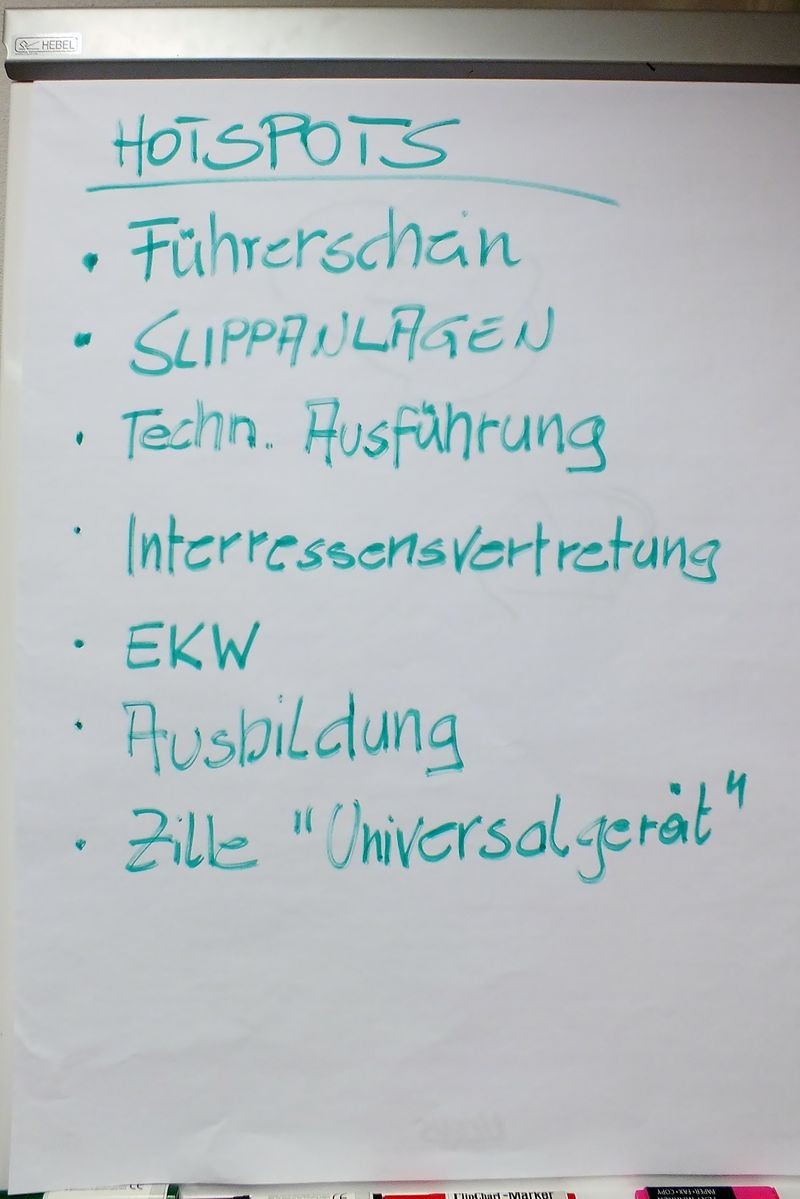 HEBEL
HOTSPOTS
• Führerschein
• SLIPPANLAGEN
• Techn. Ausführung
• Interressensvertretung
• EKW
• Ausbildung
• Zille "Universalgerät"
FlipChart-Marker